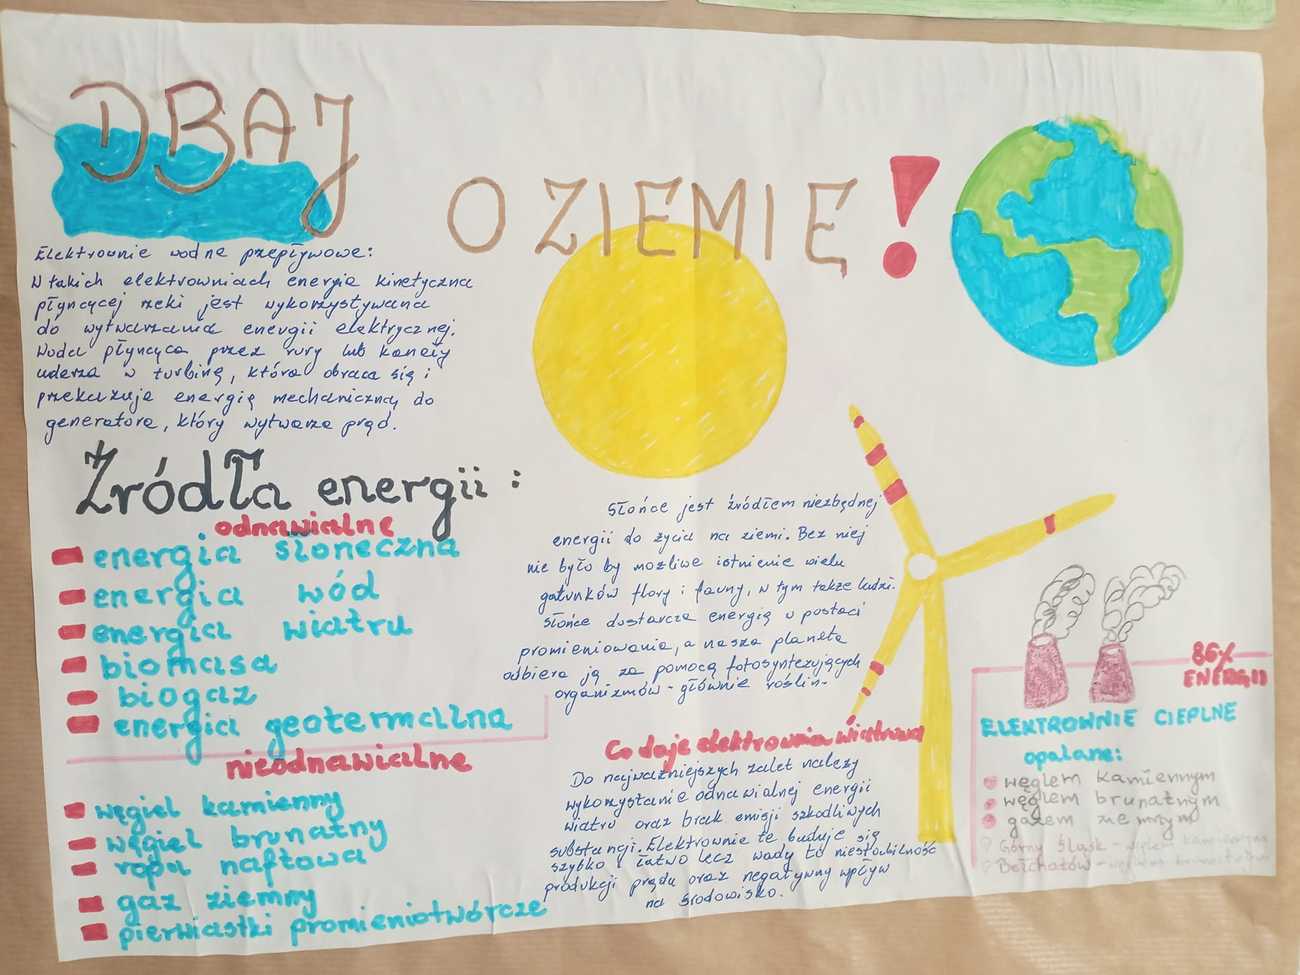 DBAJ
O ZIEMIĘ!
Elektrownie wodne przepływowe:
W takich elektrowniach energia kinetyczna
płynącej rzeki jest wykorzystywana
do wytwarzania energii elektrycznej.
Woda płynąca przez rury lub kanały
uderza w turbinę, która obraca się i
przekazuje energię mechaniczną do
generatora, który wytwarza prąd.
Źródła energii:
odnawialne
energia słoneczna
energia wód
energia wiatru
biomasa
biogaz
energia geotermalna
nieodnawialne
węgiel kamienny
węgiel brunatny
ropa naftowa
gaz ziemny
pierwiastki promieniotwórcze
Słońce jest źródłem niezbędnej
energii do życia na ziemi. Bez niej
nie było by możliwe istnienie wielu
gatunków flory i fauny, w tym także ludzi.
Słońce dostarcza energię w postaci
promieniowania, a nasza planeta
odbiera ją za pomocą fotosyntezujących
organizmów - głównie roślin.
Co daje elektrownia wiatrowa
Do najważniejszych zalet należy
wykorzystanie odnawialnej energii
wiatru oraz brak emisji szkodliwych
substancji. Elektrownie te buduje się
szybko i łatwo lecz wady to niestabilność
produkcji prądu oraz negatywny wpływ
na środowisko.
86%
ENERGII
ELEKTROWNIE CIEPLNE
opalane:
węglem kamiennym
węglem brunatnym
gazem ziemnym
Górny Śląsk - węglem kamiennym
Bełchatów - węglem brunatnym